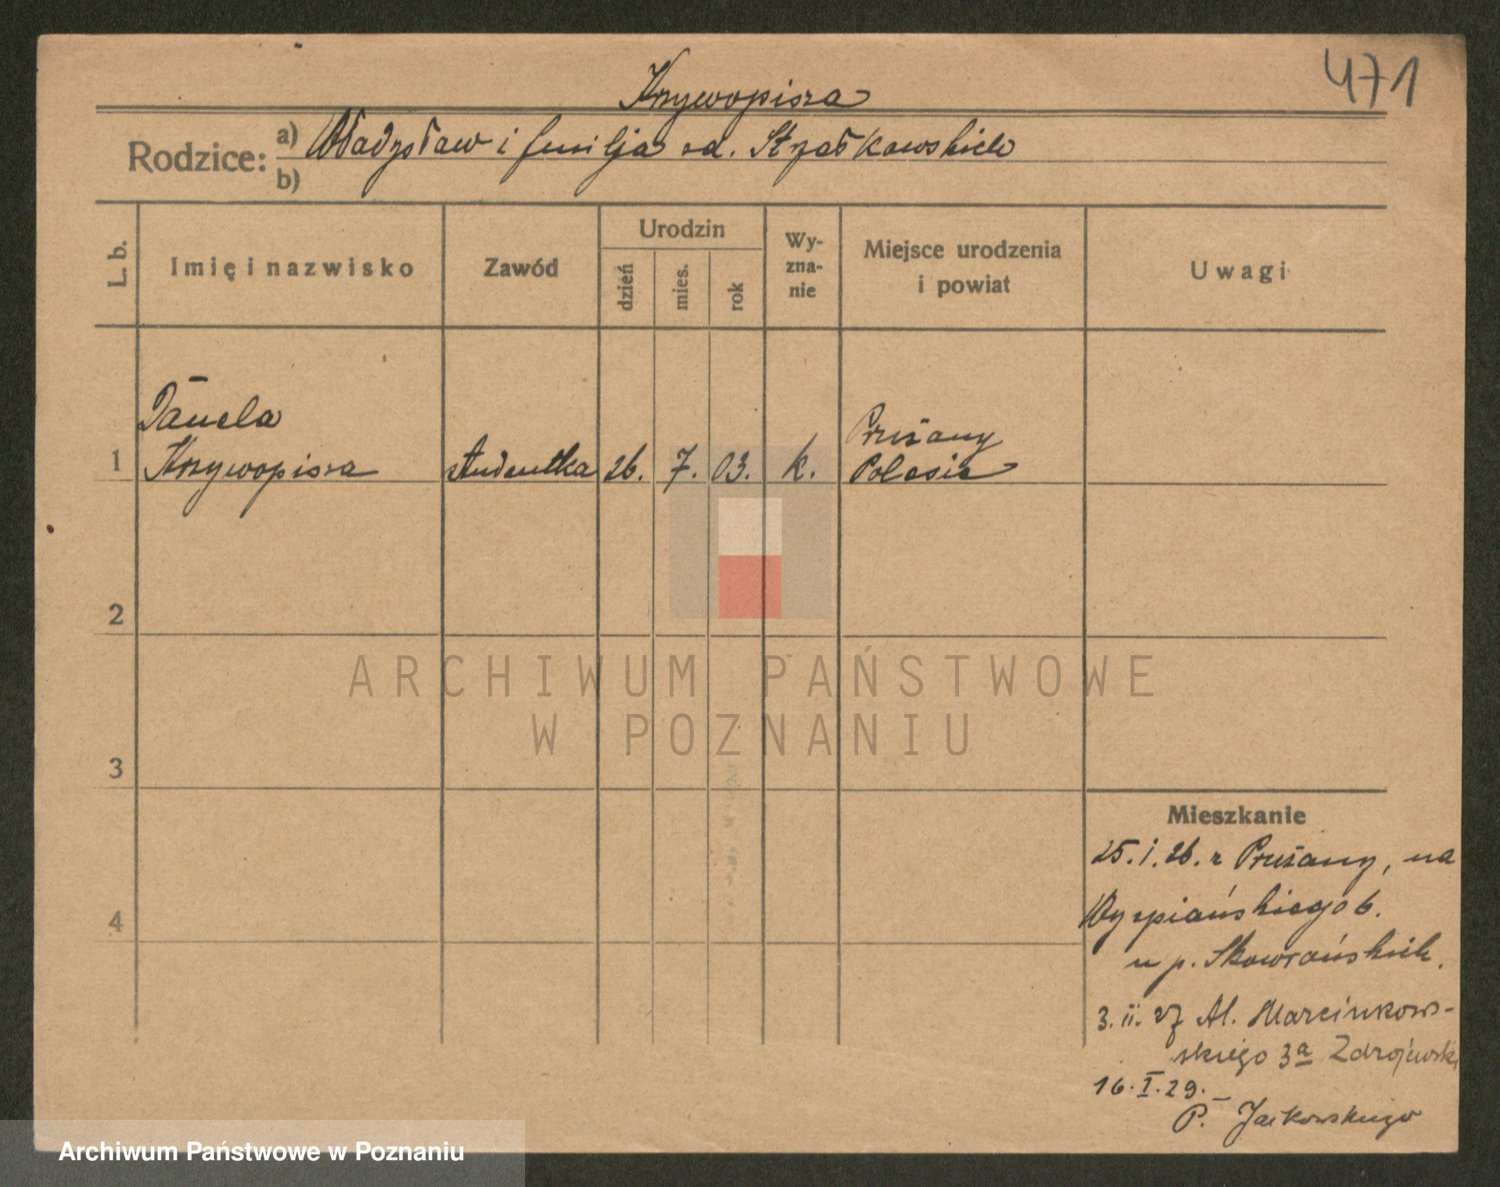 471
Krzywopisza
Rodzice: a) Władysław i Emilja od. Strzałkowskich
b)
L. b.
Imię i nazwisko
Zawód
Urodzin
dzień
mies.
rok
Wy-
zna-
nie
Miejsce urodzenia
i powiat
Uwagi
Daniela
1 Krzywopisza studentka 26. 7. 03. k. Prużany
Polesie
2
3
4
ARCHIWUM PAŃSTWOWE
W POZNANIU
Mieszkanie
25. I. 26. z Prużany, na
Wyspiańskiego 6.
u p. Skowrońskich.
3. II. 27 Al. Marcinkow-
skiego 3a Zdrojewski
16. I. 29.
P.
Archiwum Państwowe w Poznaniu